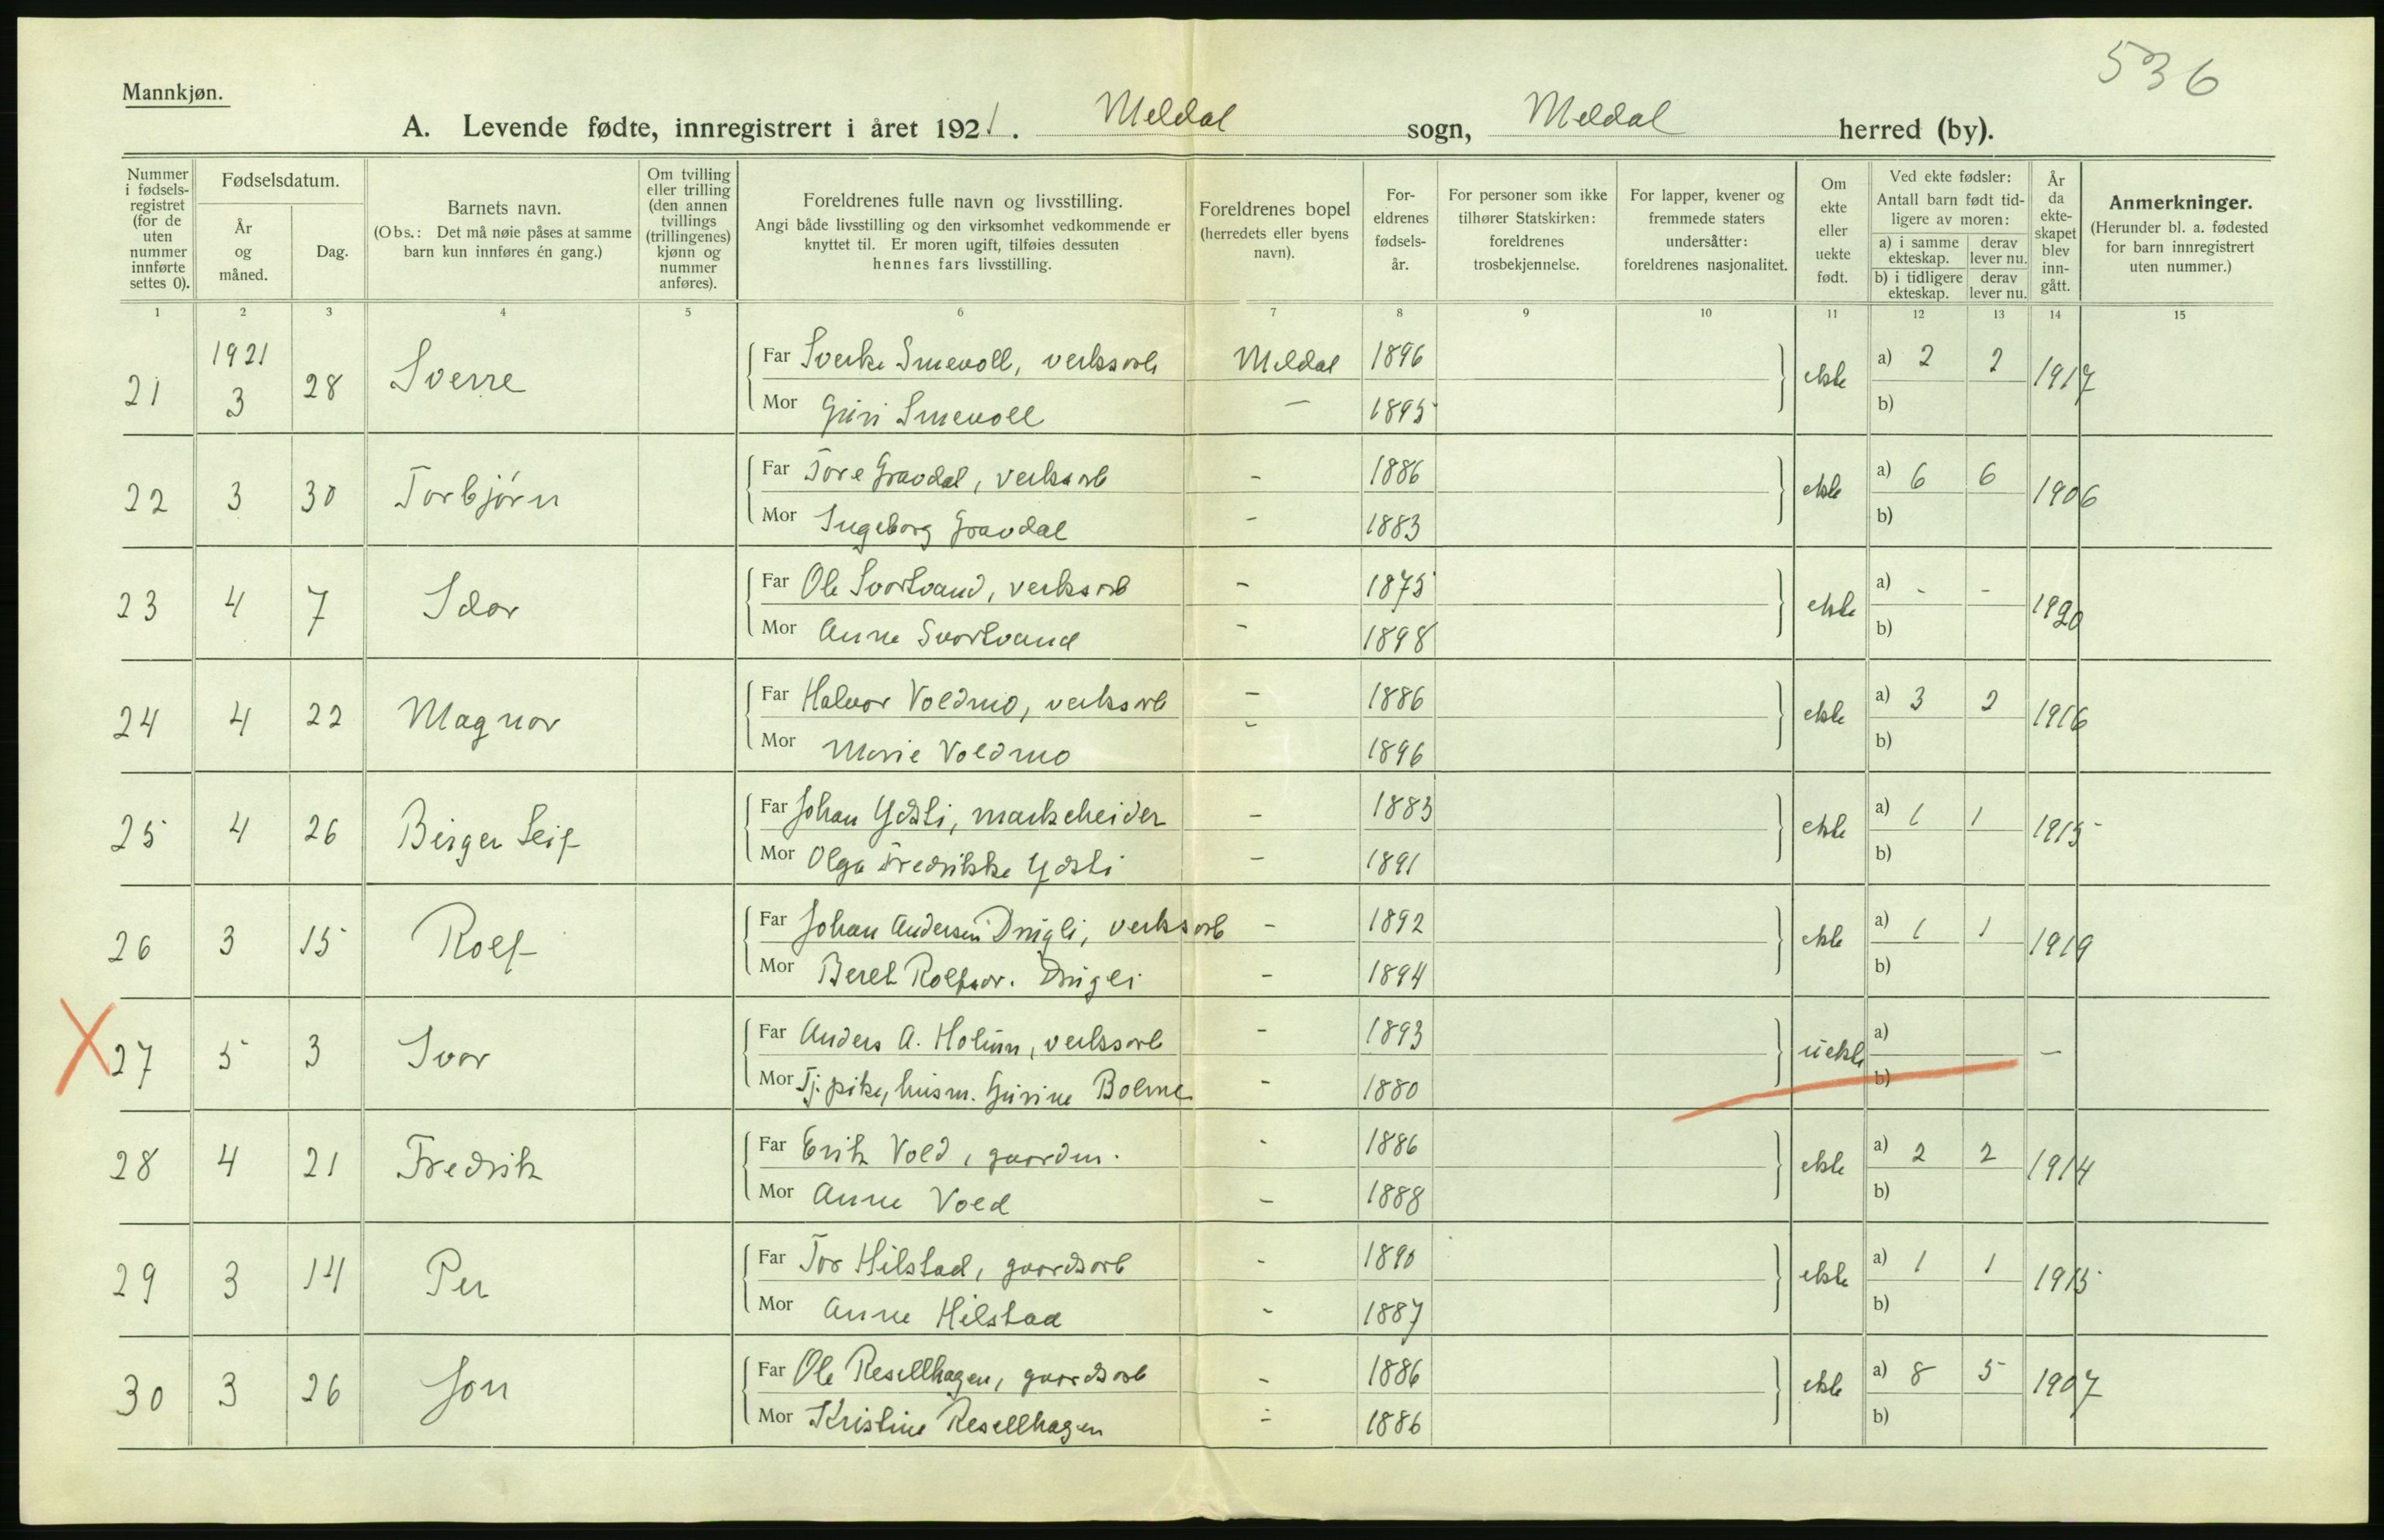 536
Mannkjøn.
A. Levende fødte, innregistrert i året 1921. Meldal sogn, Meldal herred (by).
Nummer i fødsels-registret (for de uten nummer innførte settes 0).
Fødselsdatum.
År og måned.
Dag.
Barnets navn.
(Obs.: Det må nøie påses at samme barn kun innføres én gang.)
Om tvilling eller trilling (den annen tvillings (trillingenes) kjønn og nummer anføres).
Foreldrenes fulle navn og livsstilling.
Angi både livsstilling og den virksomhet vedkommende er knyttet til. Er moren ugift, tilføies dessuten hennes fars livsstilling.
Foreldrenes bopel (herredets eller byens navn).
For-eldrenes fødsels-år.
For personer som ikke tilhører Statskirken: foreldrenes trosbekjennelse.
For lapper, kvener og fremmede staters undersåtter: foreldrenes nasjonalitet.
Om ekte eller uekte født.
Ved ekte fødsler:
Antall barn født tid-ligere av moren:
a) i samme ekteskap.
derav lever nu.
b) i tidligere ekteskap.
derav lever nu.
År da ekte-skapet blev inn-gått.
Anmerkninger.
(Herunder bl. a. fødested for barn innregistrert uten nummer.)
1 2 3 4 5 6 7 8 9 10 11 12 13 14 15
1921
21 3 28 Sverre Far Sverke Smevoll, verksarb Meldal 1896 ekte a) 2 2 1917
Mor Guri Smevoll — 1895 b)
22 3 30 Torbjørn Far Tore Gravdal, verksarb - 1886 ekte a) 6 6 1906
Mor Ingeborg Gravdal - 1883 b)
23 4 7 Idar Far Ole Svortvand, verksarb - 1875 ekte a) - - 1920
Mor Anne Svortvand - 1898 b)
24 4 22 Magnar Far Halvor Voldmo, verksarb - 1886 ekte a) 3 2 1916
Mor Marie Voldmo - 1896 b)
25 4 26 Birger Leif Far Johan Ydsti, markscheider - 1883 ekte a) 1 1 1915
Mor Olga Fredrikke Ydsti - 1891 b)
26 3 15 Rolf Far Johan Andersen Drugli, verksarb - 1892 ekte a) 1 1 1919
Mor Beret Rolfsdr. Drugli - 1894 b)
X 27 5 3 Ivar Far Anders A. Holum, verksarb - 1893 uekte a) —
Mor Tj.pike, husm. Gurine Bolme - 1880 b)
28 4 21 Fredrik Far Erik Vold, gaardm. - 1886 ekte a) 2 2 1914
Mor Anne Vold - 1888 b)
29 3 14 Per Far Tor Hilstad, gaardsarb - 1890 ekte a) 1 1 1915
Mor Anne Hilstad - 1887 b)
30 3 26 Jon Far Ole Resellhagen, gaardsarb - 1886 ekte a) 8 5 1907
Mor Kristine Resellhagen - 1886 b)